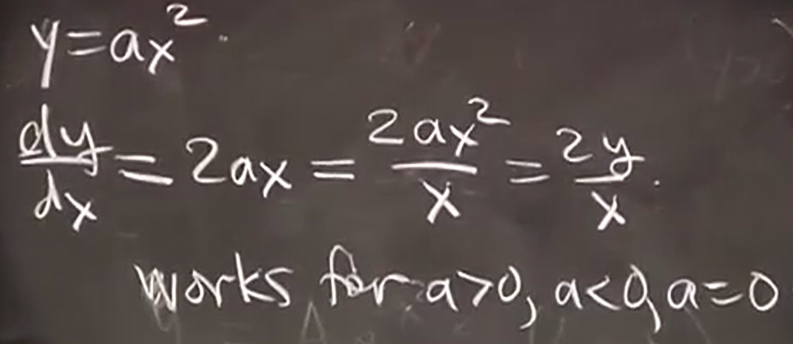 y=ax².
dy/dx = 2ax = 2ax²/x = 2y/x.
works for a>0, a<0, a=0